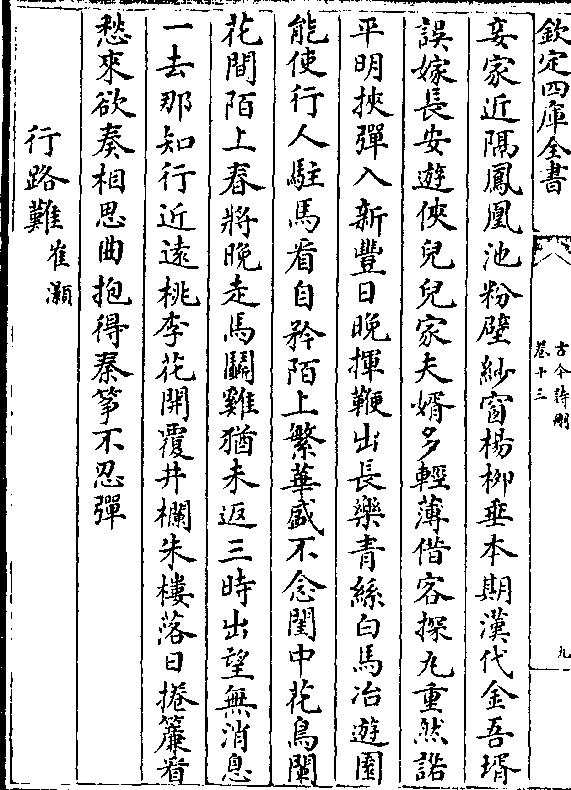 欽定四庫全書
古今詩刪
卷十三
九
妾家近隔鳳凰池粉壁紗窗楊柳垂本期漢代金吾壻
誤嫁長安遊俠兒兒家夫婿多輕薄借客探丸重然諾
平明挾彈入新豐日晚揮鞭出長樂青絲白馬冶遊園
能使行人駐馬看自矜陌上繁華盛不念閨中花鳥闌
花間陌上春將晚走馬鬬雞猶未返三時出望無消息
一去那知行近遠桃李花開覆井欄朱樓落日捲簾看
愁來欲奏相思曲抱得秦筝不忍彈
行路難 崔灝